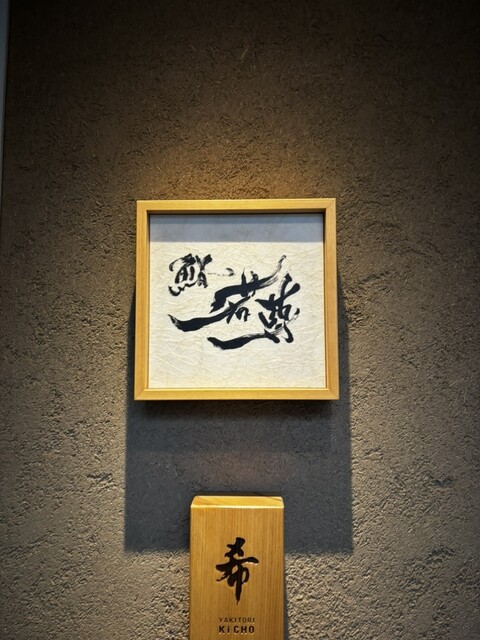 鮨 若
希
YAKITORI
KiCHO